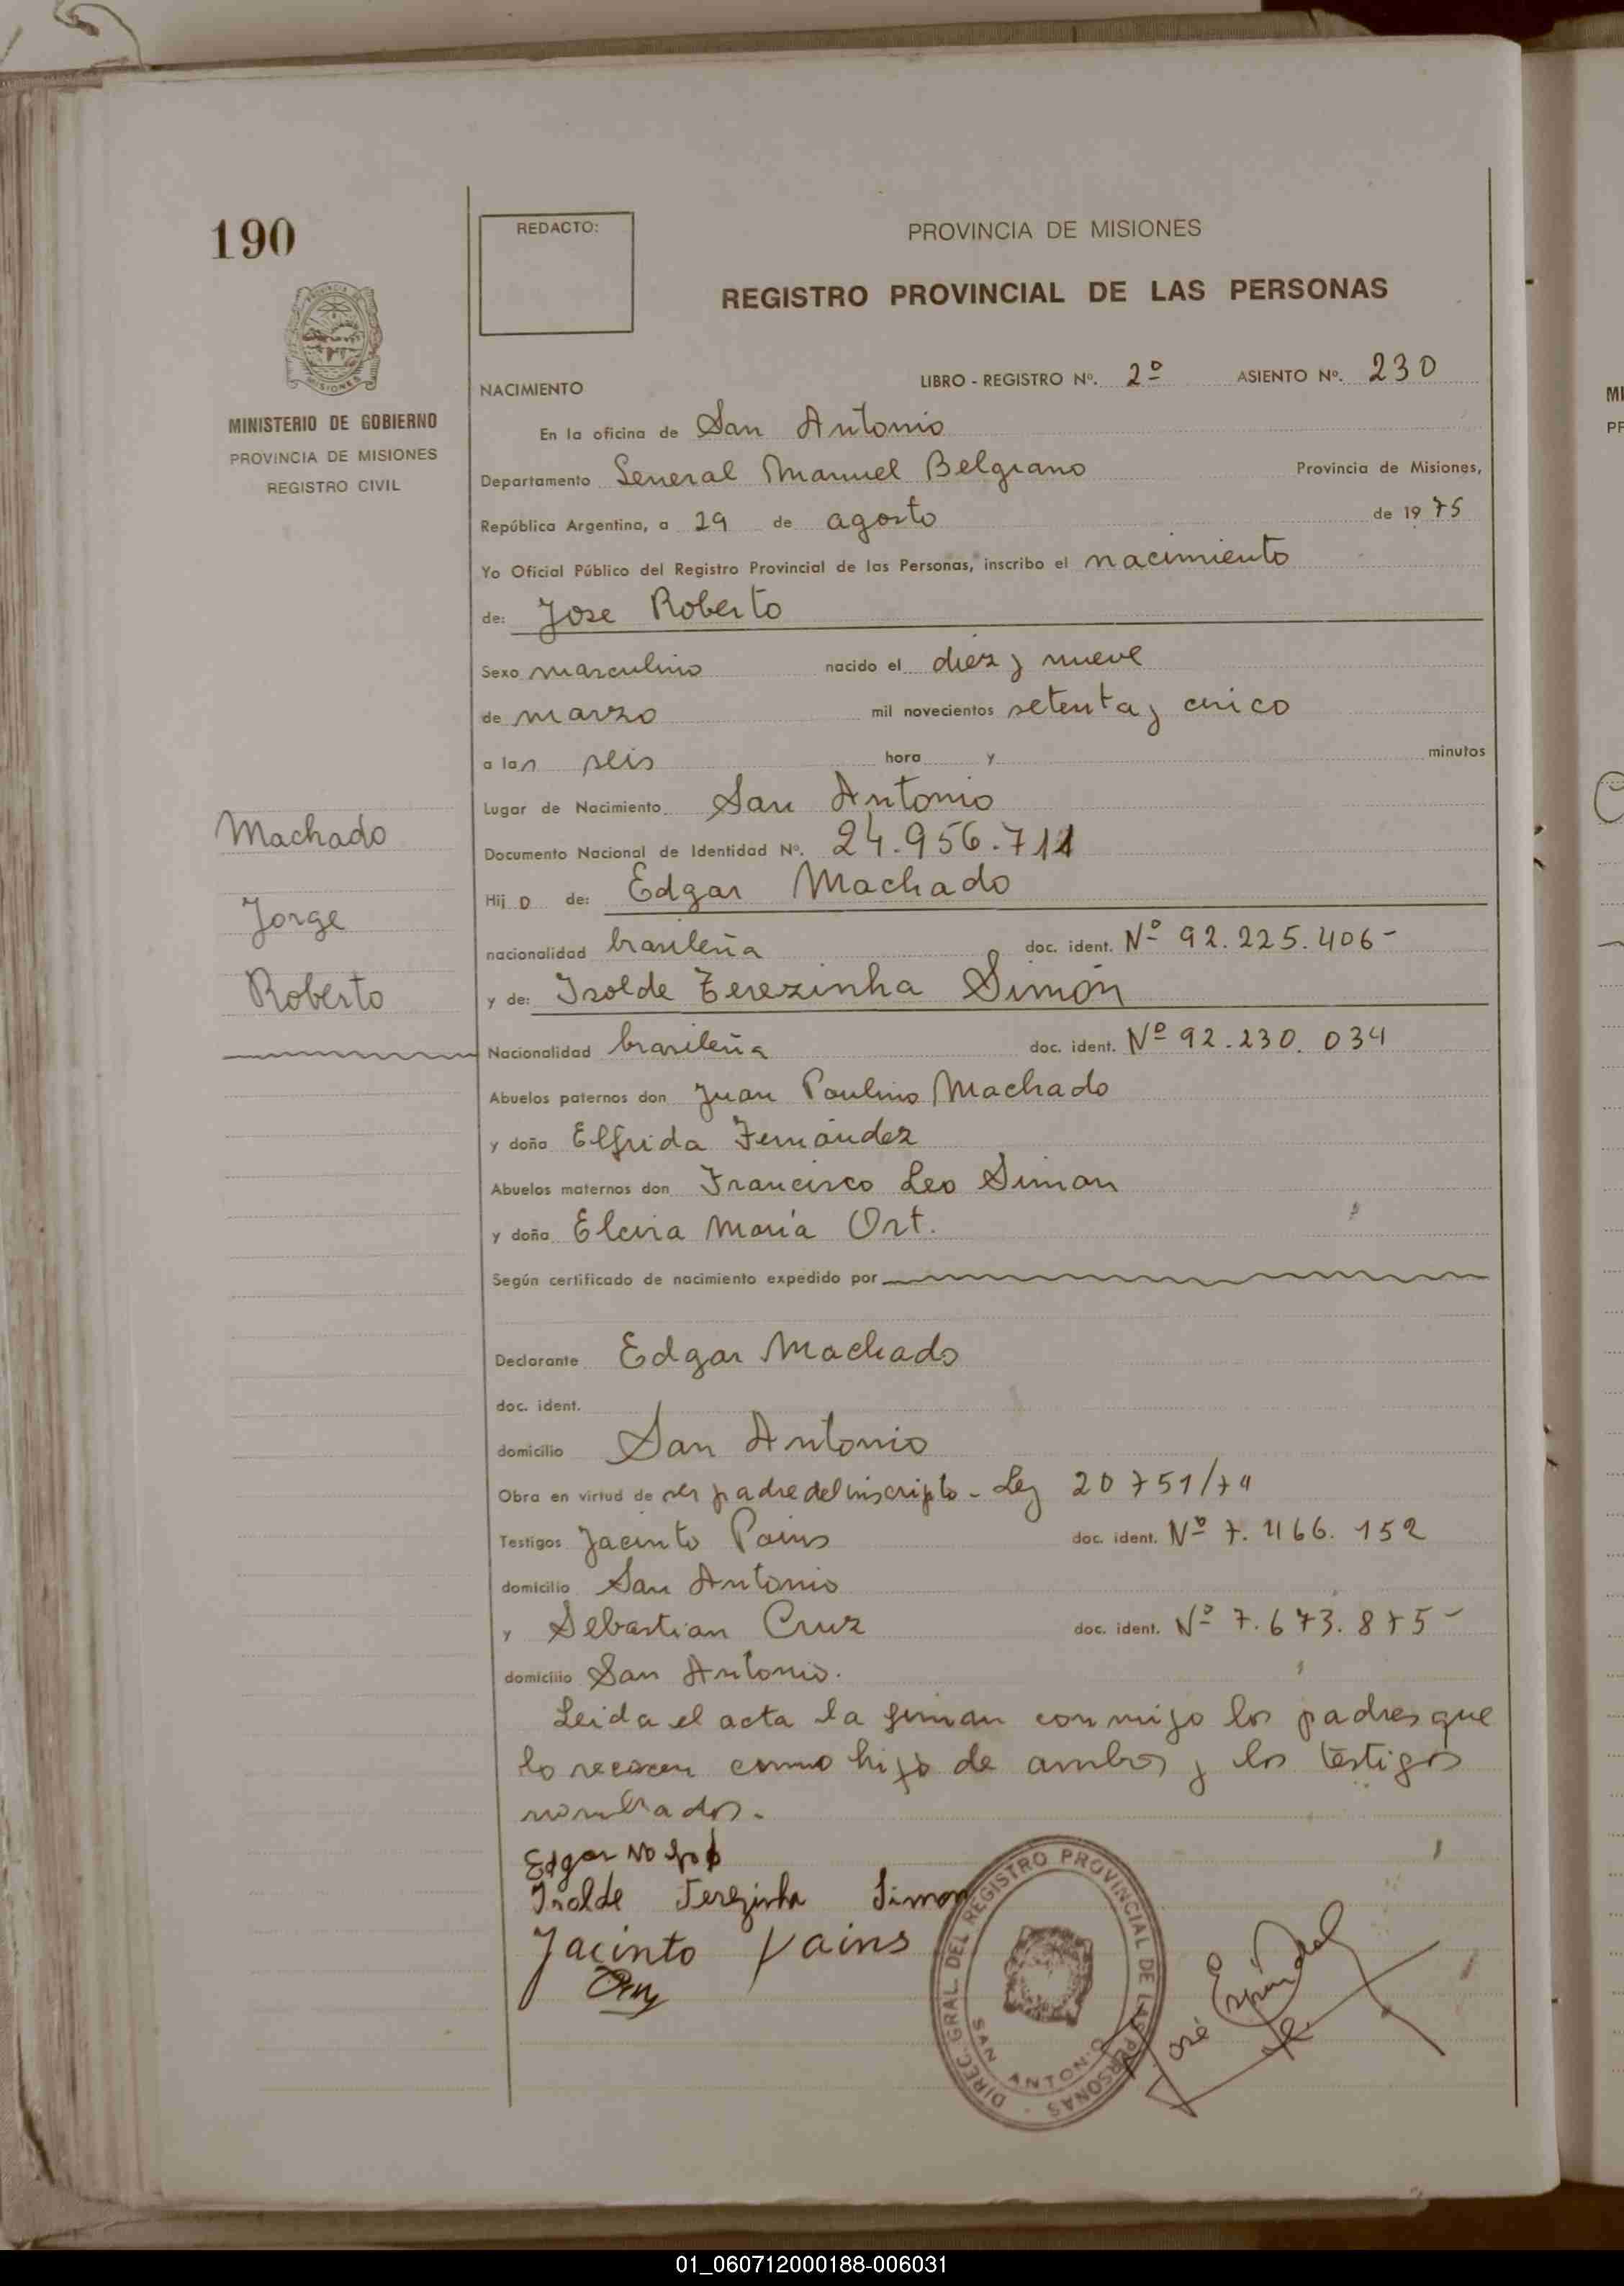 190
REDACTO:
PROVINCIA DE MISIONES
REGISTRO PROVINCIAL DE LAS PERSONAS
PROVINCIA DE MISIONES
MINISTERIO DE GOBIERNO
PROVINCIA DE MISIONES
REGISTRO CIVIL
NACIMIENTO LIBRO - REGISTRO Nº. 2º ASIENTO Nº. 230
En la oficina de San Antonio
Departamento General Manuel Belgrano Provincia de Misiones,
República Argentina, a 29 de agosto de 1975
Yo Oficial Público del Registro Provincial de las Personas, inscribo el nacimiento
de: Jose Roberto
Sexo masculino nacido el diez y nueve
de marzo mil novecientos setenta y cinco
a las seis hora y minutos
Lugar de Nacimiento San Antonio
Machado
Documento Nacional de Identidad Nº. 24.956.711
Hijo de: Edgar Machado
Jorge
nacionalidad brasileña doc. ident. Nº 92.225.406-
Roberto
y de: Isolde Terezinha Simón
Nacionalidad brasileña doc. ident. Nº 92.230.034
Abuelos paternos don Juan Paulino Machado
y doña Elfrida Fernández
Abuelos maternos don Francisco Leo Simon
y doña Elcira María Ort.
Según certificado de nacimiento expedido por
Declarante Edgar Machado
doc. ident.
domicilio San Antonio
Obra en virtud de ser padre del inscripto - Ley 20751/74
Testigos Jacinto Pains doc. ident. Nº 7.466.152
domicilio San Antonio
y Sebastian Cruz doc. ident. Nº 7.673.875-
domicilio San Antonio.
Leida el acta la firman conmigo los padres que
lo como hijo de ambos y los testigos
nombrados.
Edgar
Isolde Terezinha Simon
Jacinto Pains
José Espíndola
DIREC. GRAL. DEL REGISTRO PROVINCIAL DE LAS PERSONAS
SAN ANTONIO
01_060712000188-006031